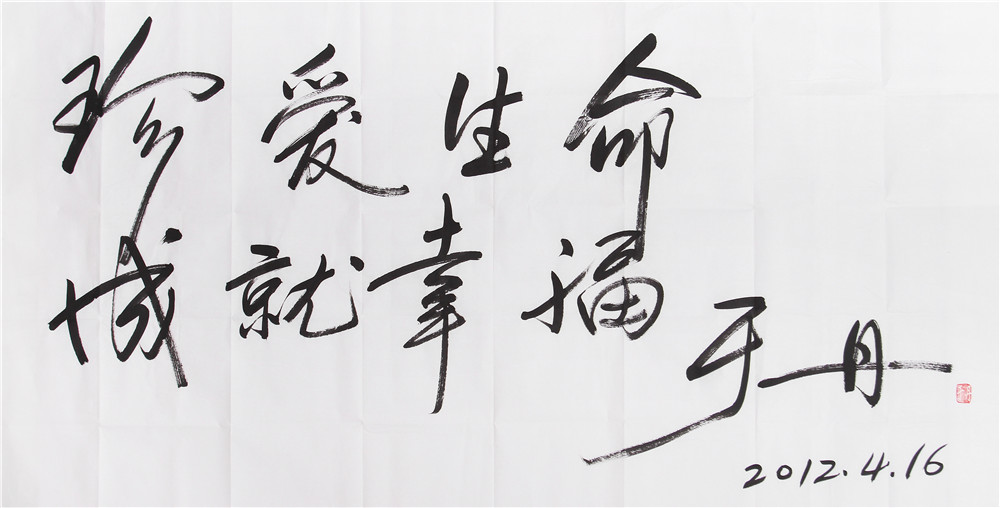 珍爱生命
成就幸福
于丹
2012.4.16